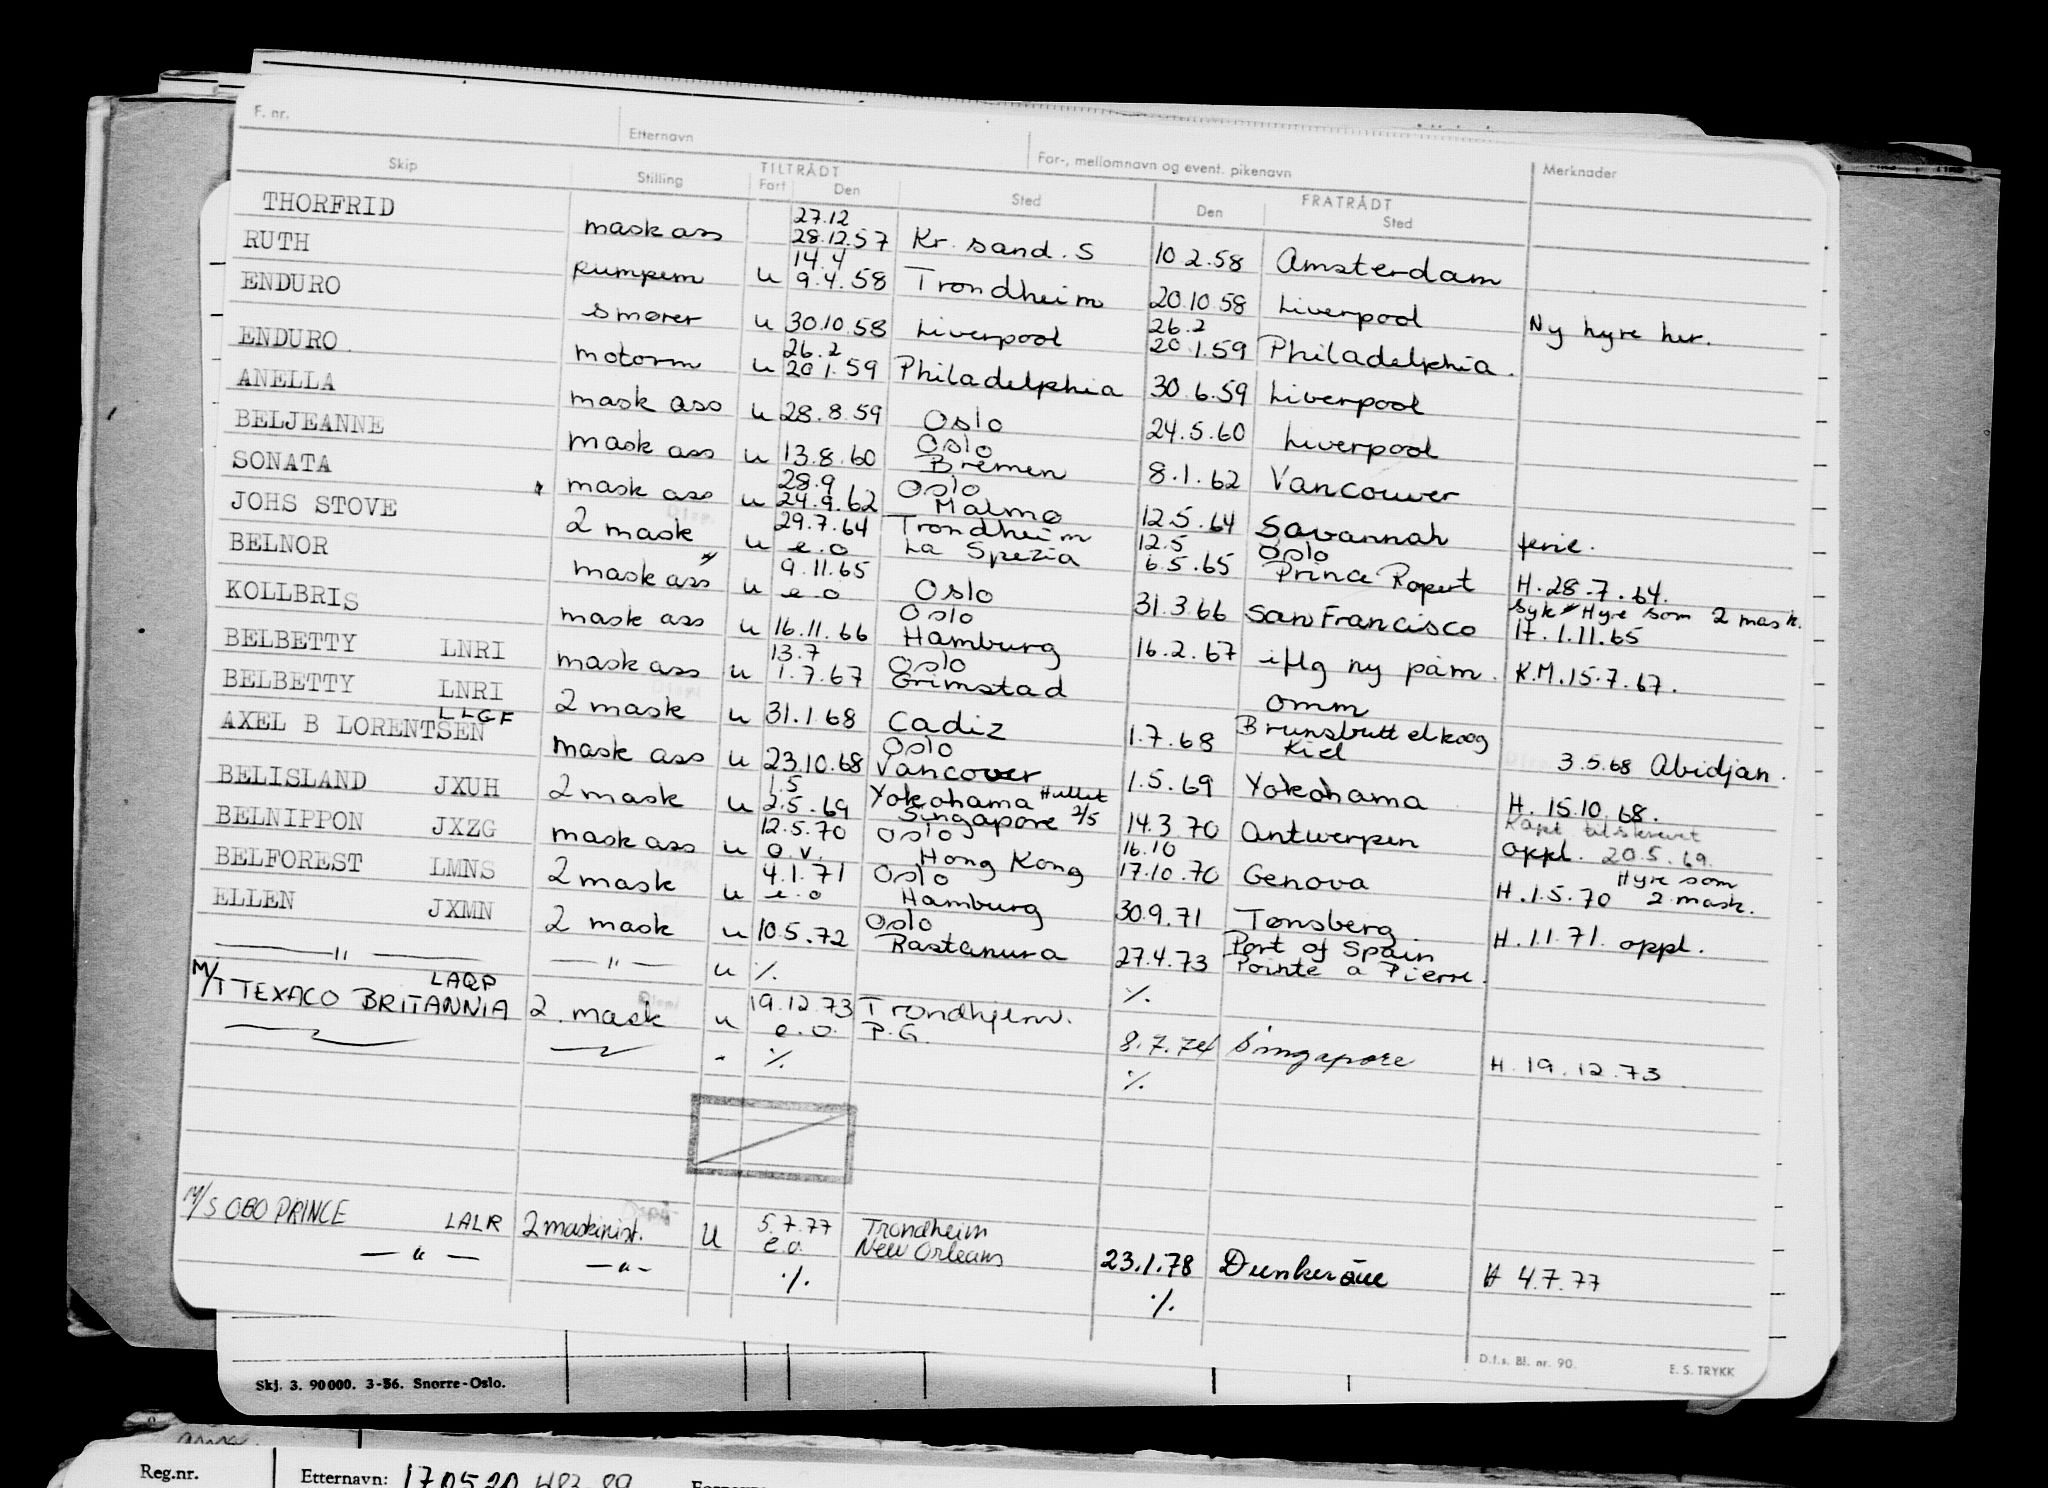 F. nr. Etternavn For-, mellomnavn og event. pikenavn Merknader
Skip Stilling TILTRÅDT Fart Den Sted FRATRÅDT Den Sted
THORFRID mask ass 27.12 28.12.57 Kr. sand. S 10.2.58 Amsterdam
RUTH pumpem u 14.4 9.4.58 Trondheim 20.10.58 Liverpool
ENDURO smører u 30.10.58 Liverpool 26.2 20.1.59 Philadelphia. Ny hyre her.
ENDURO. motorm u 26.2 20.1.59 Philadelphia 30.6.59 Liverpool
ANELLA mask ass u 28.8.59 Oslo 24.5.60 Liverpool
BELJEANNE mask ass u 13.8.60 Oslo Bremen 8.1.62 Vancouver
SONATA mask ass u 28.9 24.9.62 Oslo Malmø 12.5.64 Savannah ferie.
JOHS STOVE 2 mask u 29.7.64 e.o Trondheim La Spezia 12.5 6.5.65 Oslo Prince Rupert H. 28.7.64.
BELNOR mask ass u 9.11.65 e.o Oslo 31.3.66 San Francisco syk Hyre som 2 mask. H. 1.11.65
KOLLBRIS mask ass u 16.11.66 Oslo Hamburg 16.2.67 iflg ny påm. K.M. 15.7.67.
BELBETTY LNRI mask ass u 13.7 1.7.67 Oslo Grimstad omm
BELBETTY LNRI 2 mask u 31.1.68 Cadiz 1.7.68 Brunsbuttelkoog Kiel 3.5.68 Abidjan.
LLGF
AXEL B LORENTSEN mask ass u 23.10.68 Oslo Vancover 1.5.69 Yokohama H. 15.10.68.
BELISLAND JXUH 2 mask u 1.5 2.5.69 Yokohama Singapore 2/5 14.3.70 Antwerpen Kapt. tilskrevet oppl. 20.5.69.
BELNIPPON JXZG mask ass u 12.5.70 o.v. Oslo Hong Kong 16.10 17.10.70 Genova Hyre som H. 1.5.70 2 mask.
BELFOREST LMNS 2 mask u 4.1.71 e.o Oslo Hamburg 30.9.71 Tønsberg H. 1.1.71. oppl.
ELLEN JXMN 2 mask u 10.5.72 Oslo Rastanura 27.4.73 Port of Spain Pointe a Pierre.
— " — — " — u ./. ./.
LAQP
M/T TEXACO BRITANNIA 2. mask u 19.12.73 e.o. Trondhjem. P.G. 8.7.74 Singapore H. 19.12.73.
" ./. ./.
M/S OBO PRINCE LALR 2 maskinist. U 5.7.77 e.o. Trondheim New Orleans 23.1.78 Dunkerque H 4.7.77
— " — — " — ./. ./.
D.f.s. Bl. nr. 90. E. S. TRYKK
Skj. 3. 90000. 3-56. Snorre-Oslo.
Reg.nr. Etternavn: 170520